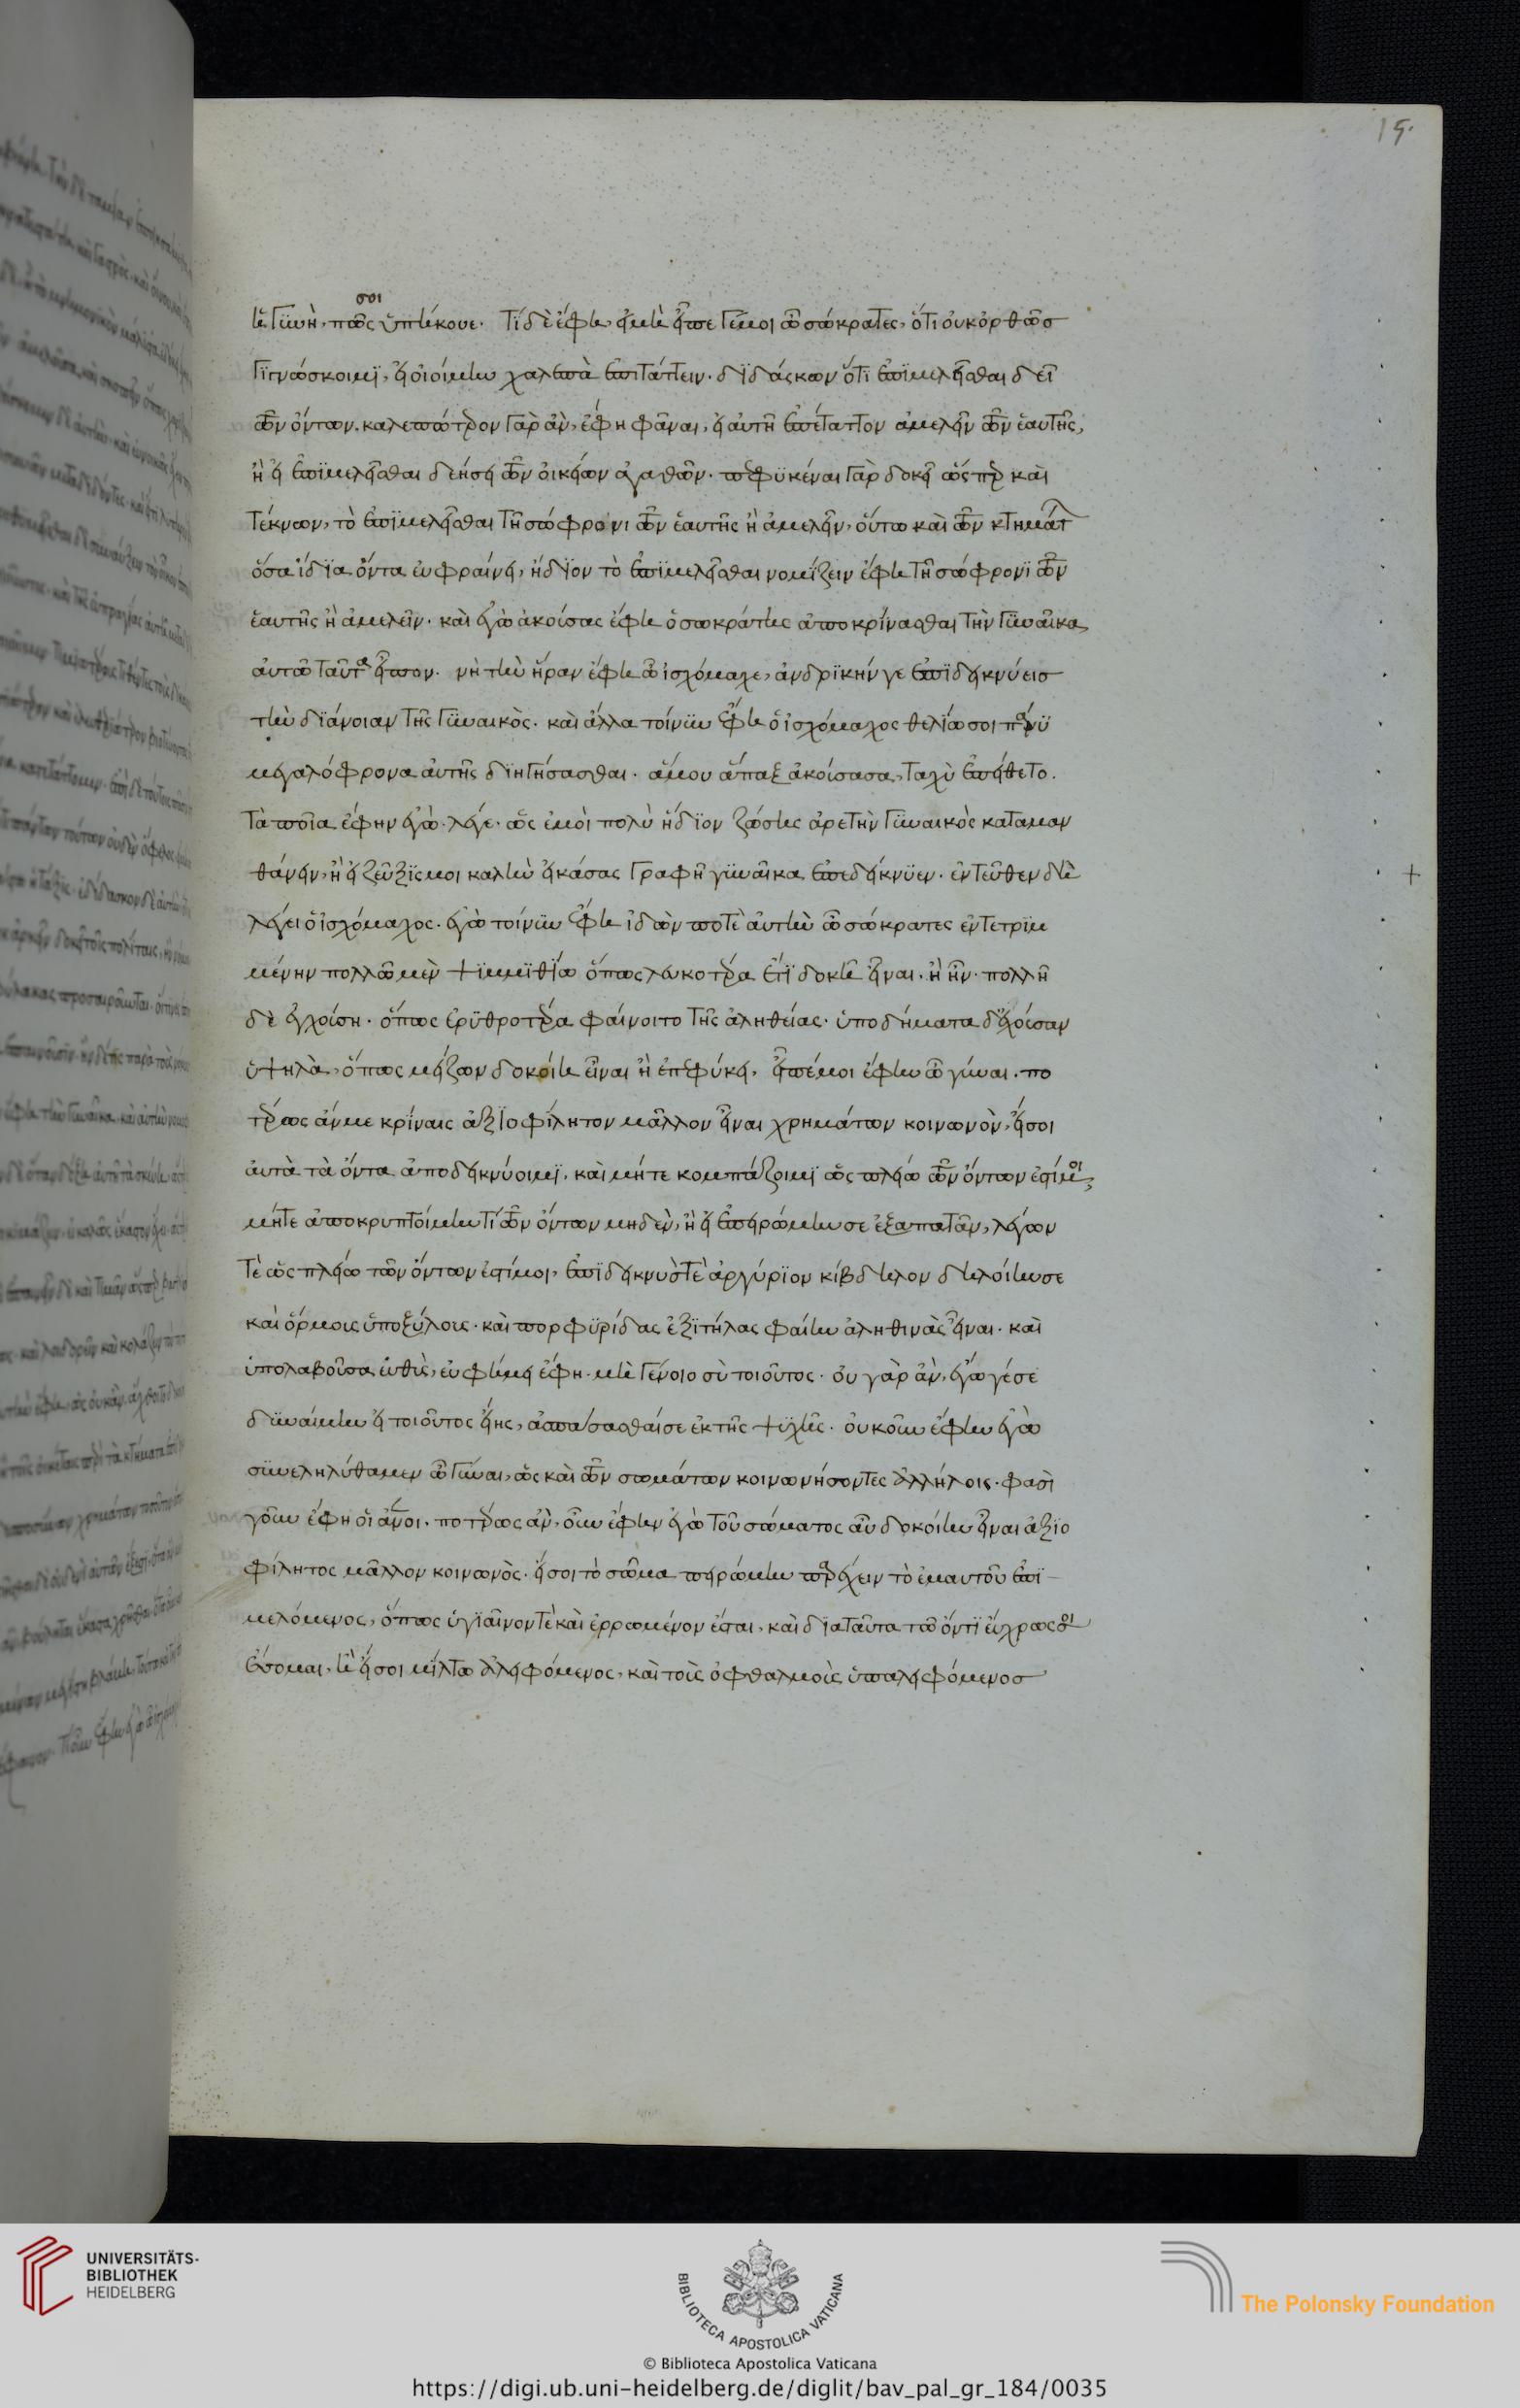 15.
σοι
ἡ γϋνὴ, πῶς ὑπήκουε. Τί δὲ ἔφη, εἰ μὴ εἶπέ γέ μοι ὦ σώκρατες, ὅτι οὐκ ὀρθῶσ
γϊγνώσκοιμϊ, εἰ οἰοίμην χαλεπὰ ἐπιτάττειν. δϊδάσκων ὅτι ἐπϊμελεῖσθαι δεῖ
τῶν ὄντων. χαλεπώτερον γὰρ ἂν, ἔφη φᾶναι, εἰ αὐτῆ ἐπέταττον ἀμελεῖν τῶν ἑαυτῆς,
ἢ εἰ ἐπϊμελεῖσθαι δεήσει τῶν οἰκείων ἀγαθῶν. πεφϋκέναι γὰρ δοκεῖ ὥσπερ καὶ
τέκνων, τὸ ἐπϊμελεῖσθαι τῆ σώφρονι τῶν ἑαυτῆς ἢ ἀμελεῖν, οὕτω καὶ τῶν κτημάτ
ὅσα ἴδϊα ὄντα εὐφραίνει, ἥδϊον τὸ ἐπϊμελεῖσθαι νομίζειν ἔφη τῆ σώφρονϊ τῶν
ἑαυτῆς ἢ ἀμελεῖν. καὶ ἐγὼ ἀκούσας ἔφη ὁ σωκράτης ἀποκρίνασθαι τὴν γϋναῖκα
αὐτῶ ταῦτα εἶπον. νὴ τὴν ἥραν ἔφη ὦ ἰσχόμαχε, ἀνδρϊκήν γε ἐπϊδεικνύεισ
τὴν δϊάνοιαν τῆς γϋναικὸς. καὶ ἄλλα τοίνϋν ἔφη ὁ ἰσχόμαχος θελϊω σοι πάνϋ
μεγαλόφρονα αὐτῆς δϊηγήσασθαι. ἅ μου ἅπαξ ἀκούσασα, ταχὺ ἐπείθετο.
τὰ ποῖα ἔφην ἐγὼ. λέγε. ὡς ἐμοὶ πολὺ ἥδϊον ζώσης ἀρετὴν γϋναικὸς καταμαν
θάνειν, ἢ εἰ ζεῦξϊς μοι καλὴν εἰκάσας γραφῆ γϋναῖκα ἐπεδείκνϋεν. ἐντεῦθεν δὴ
λέγει ὁ ἰσχόμαχος. ἐγὼ τοίνϋν ἔφη ἰδών ποτὲ αὐτὴν ὦ σώκρατες ἐντετρϊμ
μένην πολλῶ μὲν ψϊμμϊθίω ὅπως λευκοτέρα ἔτϊ δοκῆ εἶναι, ἢ ἦν. πολλῆ
δὲ ἐγχούση. ὅπως ἐρϋθροτέρα φαίνοιτο τῆς ἀληθείας. ὑποδήματα δ' ἔχουσαν
ὑψηλὰ, ὅπως μείζων δοκοίη εἶναι ἢ ἐπεφύκει, εἰπέ μοι ἔφην ὦ γύναι. πο
τέρως ἄν με κρίναις ἀξϊοφίλητον μᾶλλον εἶναι χρημάτων κοινωνὸν, εἴ σοι
αὐτὰ τὰ ὄντα ἀποδεικνύοιμϊ, καὶ μήτε κομπάζοιμϊ ὡς πλείω τῶν ὄντων ἐστί μοι,
μήτε ἀποκρυπτοίμην τί τῶν ὄντων μηδεν, ἢ εἰ ἐπειρώμην σε ἐξαπατᾶν, λέγων
τὲ ὡς πλείω τῶν ὄντων ἐστί μοι, ἐπϊδεικνύς τὲ ἀργύρϊον κίβδηλον δηλοίην σε
καὶ ὅρμοις ὑποξύλοις. καὶ πορφϋρίδας ἐξϊτήλας φαίην ἀληθινὰς εἶναι. καὶ
ὑπολαβοῦσα εὐθὺς, εὐφήμει ἔφη. μὴ γένοιο σὺ τοιοῦτος. οὐ γὰρ ἂν, ἔγωγέ σε
δϋναίμην εἰ τοιοῦτος εἴης, ἀσπάσασθαί σε ἐκ τῆς ψϋχῆς. οὐκοῦν ἔφην ἐγὼ
σϋνεληλύθαμεν ὦ γύναι, ὡς καὶ τῶν σωμάτων κοινωνήσοντες ἀλλήλοις. φασὶ
γοῦν ἔφη οἱ ἄνοι. ποτέρως ἂν, οὖν ἔφην ἐγὼ τοῦ σώματος αὖ δοκοίην εἶναι ἀξϊο
φίλητος μᾶλλον κοινωνὸς. εἴ σοι τὸ σῶμα πειρώμην παρέχειν τὸ ἐμαυτοῦ ἐπϊ
μελόμενος, ὅπως ὑγϊαῖνον τὲ καὶ ἐρρωμένον ἔσται, καὶ δϊα ταῦτα τῶ ὄντϊ εὔχρως σοι
ἔσομαι, ἢ εἴ σοι μϊλτω ἀλειφόμενος, καὶ τοὺς ὀφθαλμοὺς ὑπαλειφόμενοσ
+
UNIVERSITÄTS-
BIBLIOTHEK
HEIDELBERG
BIBLIOTECA APOSTOLICA VATICANA
The Polonsky Foundation
© Biblioteca Apostolica Vaticana
https://digi.ub.uni-heidelberg.de/diglit/bav_pal_gr_184/0035